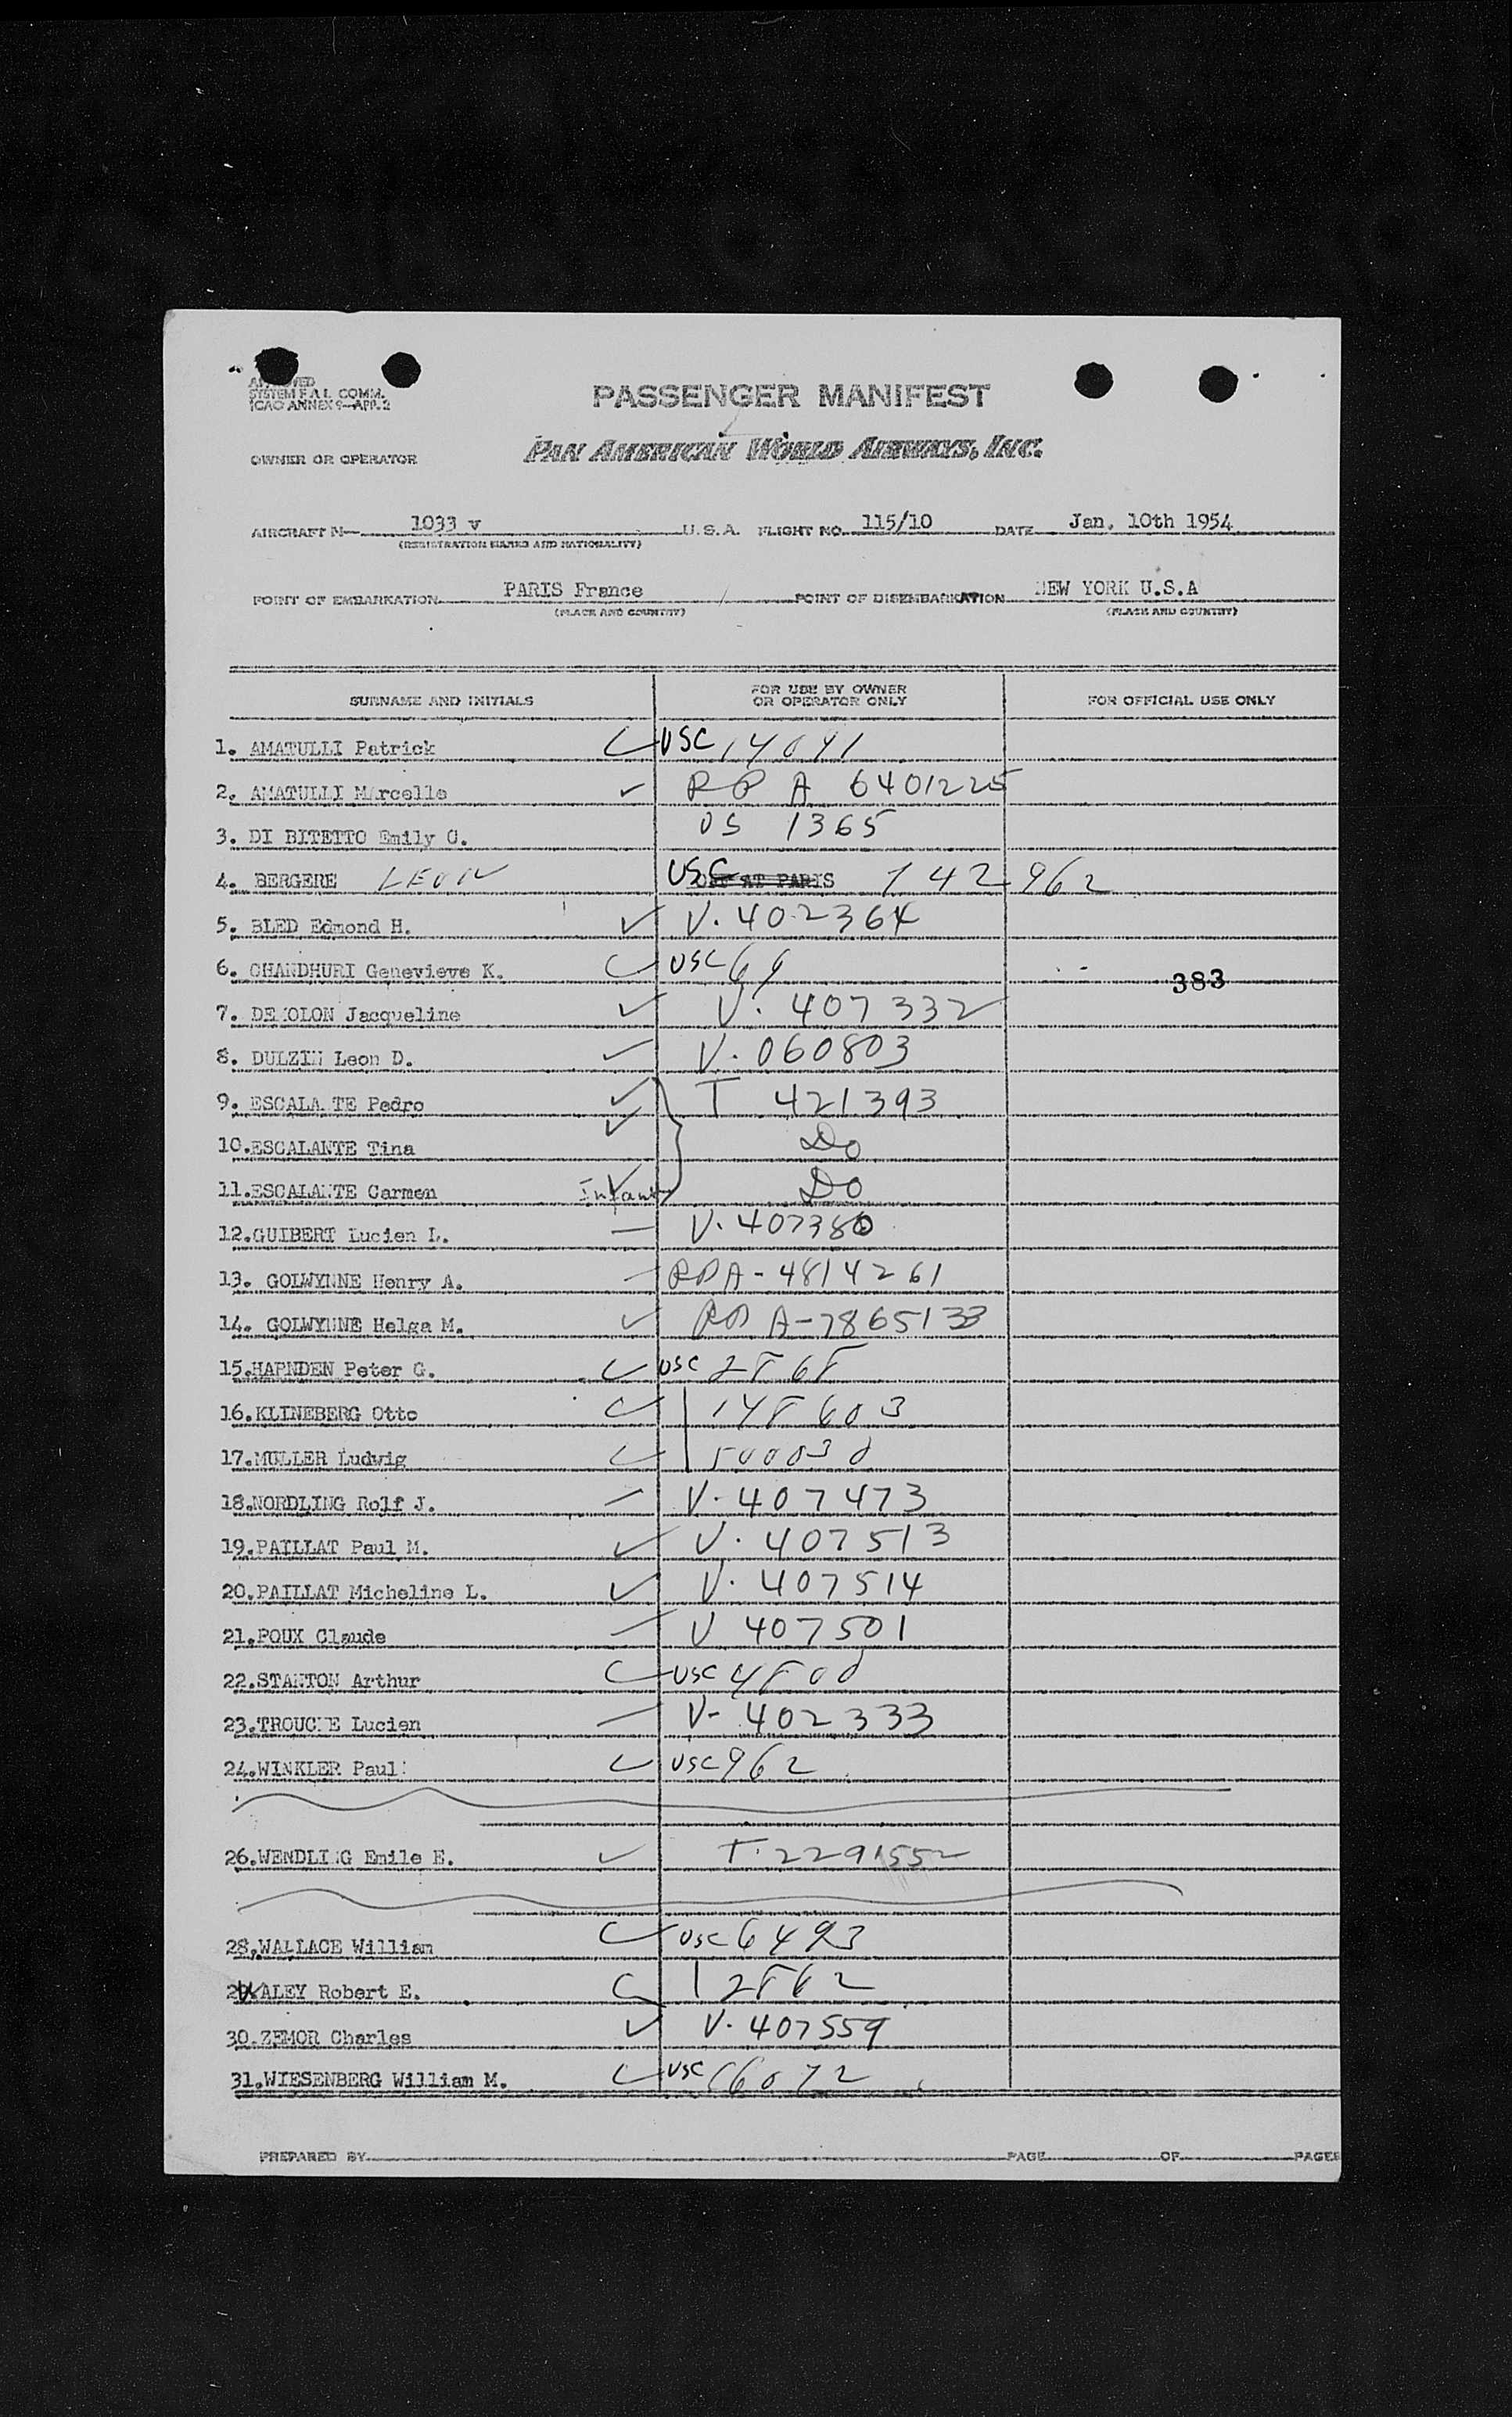 APPROVED
SYSTEM F.A.L. COMM.
ICAO ANNEX 9—APP. 2
PASSENGER MANIFEST
PAN AMERICAN WORLD AIRWAYS, INC.
OWNER OR OPERATOR
AIRCRAFT N— 1033 v U.S.A. FLIGHT NO. 115/10 DATE Jan. 10th 1954
(REGISTRATION MARKS AND NATIONALITY)
POINT OF EMBARKATION PARIS France POINT OF DISEMBARKATION NEW YORK U.S.A
(PLACE AND COUNTRY) (PLACE AND COUNTRY)
SURNAME AND INITIALS FOR USE BY OWNER OR OPERATOR ONLY FOR OFFICIAL USE ONLY
1. AMATULLI Patrick USC 14041
2. AMATULLI Marcelle RP A 6401225
3. DI BITETTO Emily C. US 1365
4. BERGERE LEON USC AT PARIS 142962
5. BLED Edmond H. V. 402364
6. CHANDHURI Genevieve K. USC 69
383
7. DEMOLON Jacqueline V. 407332
8. DULZIN Leon D. V. 060803
9. ESCALANTE Pedro T 421393
10. ESCALANTE Tina Do
11. ESCALANTE Carmen Infant Do
12. GUIBERT Lucien L. V. 407380
13. GOLWYNNE Henry A. RPA-4814261
14. GOLWYNNE Helga M. RP A-7865133
15. HARNDEN Peter G. USC 2868
16. KLINEBERG Otto 148603
17. MULLER Ludwig 500030
18. NORDLING Rolf J. V. 407473
19. PAILLAT Paul M. V. 407513
20. PAILLAT Micheline L. V. 407514
21. POUX Claude V 407501
22. STANTON Arthur USC 4800
23. TROUCHE Lucien V- 402333
24. WINKLER Paul USC 962
26. WENDLING Emile E. T. 2291552
28. WALLACE William USC 6493
29. WALEY Robert E. 2862
30. ZEMOR Charles V. 407559
31. WIESENBERG William M. USC 16072
PREPARED BY PAGE OF PAGES